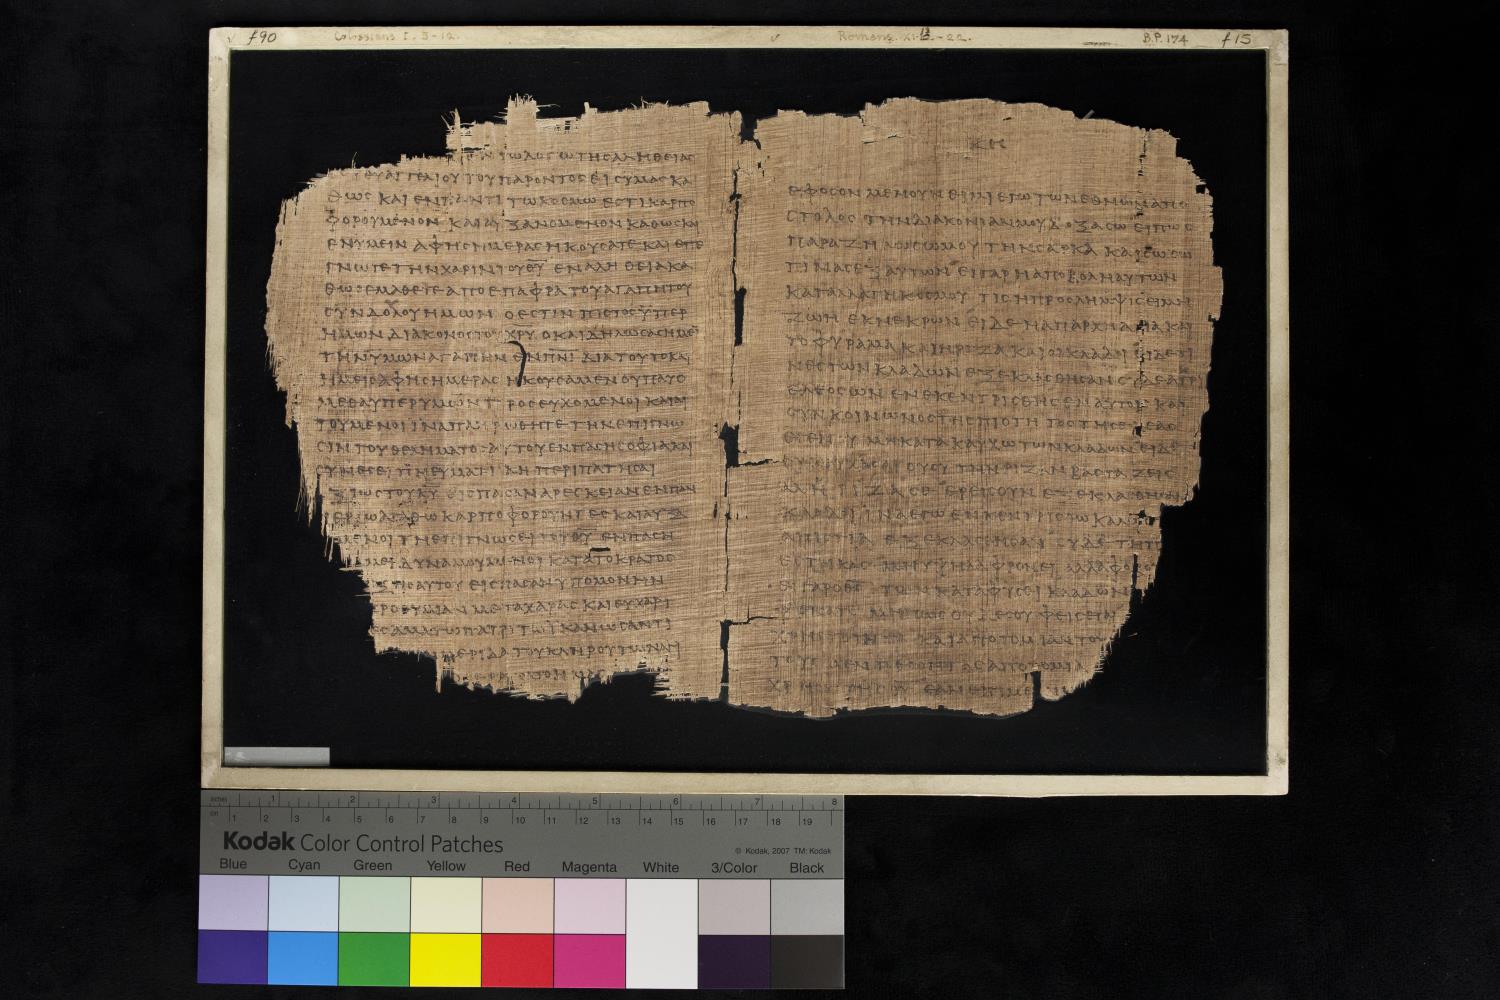 f90
Colossians I. 5-12.
Romans. XI. 13-22.
B.P. 174
f15
ΤΗϹΑΛΗΘΕΙΑϹ
ΤΟΥ ΠΑΡΟΝΤΟϹ ΕΙϹ ΥΜΑϹ ΚΑ
ΘΩϹ ΚΑΙ ΕΝ ΠΑΝΤΙ ΤΩ ΚΟϹΜΩ ΕϹΤΙ ΚΑΡΠΟ
ΦΟΡΟΥΜΕΝΟΝ ΚΑΙ ΑΥΞΑΝΟΜΕΝΟΝ ΚΑΘΩϹ ΚΑΙ
ΕΝ ΥΜΕΙΝ ΑΦ ΗϹ ΗΜΕΡΑϹ ΗΚΟΥϹΑΤΕ ΚΑΙ ΕΠΕ
ΓΝΩΤΕ ΤΗΝ ΧΑΡΙΝ ΤΟΥ ΘΥ ΕΝ ΑΛΗΘΕΙΑ ΚΑ
ΘΩϹ ΕΜΑΘΕΤΕ ΑΠΟ ΕΠΑΦΡΑ ΤΟΥ ΑΓΑΠΗΤΟΥ
ϹΥΝΔΟΛΟΥ ΗΜΩΝ Ο ΕϹΤΙΝ ΠΙΣΤΟϹ ΫΠΕΡ
ΗΜΩΝ ΔΙΑΚΟΝΟϹ ΤΟΥ ΧΡΥ Ο ΚΑΙ ΔΗΛΩϹΑϹ ΗΜΕΙ
ΤΗΝ ΥΜΩΝ ΑΓΑΠΗΝ ΕΝ ΠΝΙ ΔΙΑ ΤΟΥΤΟ ΚΑΙ
ΗΜΕΙϹ ΑΦ ΗϹ ΗΜΕΡΑϹ ΗΚΟΥϹΑΜΕΝ ΟΥ ΠΑΥΟ
ΜΕΘΑ ΥΠΕΡ ΥΜΩΝ ΠΡΟϹΕΥΧΟΜΕΝΟΙ ΚΑΙ ΑΙ
ΤΟΥΜΕΝΟΙ ΙΝΑ ΠΛΗΡΩΘΗΤΕ ΤΗΝ ΕΠΙΓΝΩ
ϹΙΝ ΤΟΥ ΘΕΛΗΜΑΤΟϹ ΑΥΤΟΥ ΕΝ ΠΑϹΗ ϹΟΦΙΑ ΚΑΙ
ϹΥΝΕϹΕΙ ΠΝΕΥΜΑΤΙΚΗ ΠΕΡΙΠΑΤΗϹΑΙ
ΞΙΩϹ ΤΟΥ ΚΥ ΕΙϹ ΠΑϹΑΝ ΑΡΕϹΚΕΙΑΝ ΕΝ ΠΑΝ
ΕΡΓΩ ΑΓΑΘΩ ΚΑΡΠΟΦΟΡΟΥΝΤΕϹ ΚΑΙ ΑΥΞ
ΜΕΝΟΙ ΤΗ ΕΠΙΓΝΩϹΕΙ ΤΟΥ ΘΥ ΕΝ ΠΑϹΗ
ΜΕΙ ΔΥΝΑΜΟΥΜΕΝΟΙ ΚΑΤΑ ΤΟ ΚΡΑΤΟϹ
ΑΥΤΟΥ ΕΙϹ ΠΑϹΑΝ ΥΠΟΜΟΝΗΝ
ΚΡΟΘΥΜΙΑΝ ΜΕΤΑ ΧΑΡΑϹ ΚΑΙ ΕΥΧΑΡΙ
ΑΜΑ ΤΩ ΠΑΤΡΙ ΤΩ ΙΚΑΝΩϹΑΝΤΙ
ΜΕΡΙΔΑ ΤΟΥ ΚΛΗΡΟΥ ΤΩΝ ΑΓΙ
ΚΗ
ΕΦ ΟϹΟΝ ΜΕΝ ΟΥΝ ΕΙΜΙ ΕΓΩ ΤΩΝ ΕΘΝΩΝ ΑΠΟ
ϹΤΟΛΟϹ ΤΗΝ ΔΙΑΚΟΝΙΑΝ ΜΟΥ ΔΟΞΑϹΩ ΕΙ ΠΩϹ
ΠΑΡΑΖΗΛΩϹΩ ΜΟΥ ΤΗΝ ϹΑΡΚΑ ΚΑΙ ϹΩϹΩ
ΤΙΝΑϹ ΕΞ ΑΥΤΩΝ ΕΙ ΓΑΡ Η ΑΠΟΒΟΛΗ ΑΥΤΩΝ
ΚΑΤΑΛΛΑΓΗ ΚΟϹΜΟΥ ΤΙϹ Η ΠΡΟϹΛΗΜΨΙϹ ΕΙ ΜΗ
ΖΩΗ ΕΚ ΝΕΚΡΩΝ ΕΙ ΔΕ Η ΑΠΑΡΧΗ ΑΓΙΑ ΚΑΙ
ΤΟ ΦΥΡΑΜΑ ΚΑΙ Η ΡΙΖΑ ΚΑΙ ΟΙ ΚΛΑΔΟΙ ΕΙ ΔΕ ΤΙ
ΝΕϹ ΤΩΝ ΚΛΑΔΩΝ ΕΞΕΚΛΑϹΘΗϹΑΝ
ΕΛΕΟϹ ΩΝ ΕΝΕΚΕΝΤΡΙϹΘΗϹ ΕΝ ΑΥΤΟΙϹ ΚΑΙ
ϹΥΝΚΟΙΝΩΝΟϹ ΤΗϹ ΠΙΟΤΗΤΟϹ ΤΗϹ ΕΛΕΑϹ
ΜΗ ΚΑΤΑΚΑΥΧΩ ΤΩΝ ΚΛΑΔΩΝ ΕΙ ΔΕ
ΟΥ ϹΥ ΤΗΝ ΡΙΖΑΝ ΒΑϹΤΑΖΕΙϹ
ΡΙΖΑ ϹΕ ΕΡΕΙϹ ΟΥΝ ΕΞΕΚΛΑϹΘΗϹΑΝ
ΚΛΑΔΟΙ ΙΝΑ ΕΓΩ ΕΝΚΕΝΤΡΙϹΘΩ ΚΑΛΩϹ
ΑΠΙϹΤΙΑ ΕΞΕΚΛΑϹΘΗϹΑΝ ϹΥ ΔΕ ΤΗ ΠΙ
ΕϹΤΗΚΑϹ ΜΗ ΥΨΗΛΑ ΦΡΟΝΕΙ ΑΛΛΑ ΦΟΒΟΥ
ΕΙ ΓΑΡ Ο ΘϹ ΤΩΝ ΚΑΤΑ ΦΥϹΙΝ ΚΛΑΔΩΝ
ΜΗ ΠΩϹ ΟΥΔΕ ϹΟΥ ΦΕΙϹΕΤΑΙ
ΚΑΙ ΑΠΟΤΟΜΙΑΝ ΤΟΥ
ΑΠΟΤΟΜΙΑ
ΕΑΝ ΕΠΙΜΕ
Kodak Color Control Patches
inches 1 2 3 4 5 6 7 8
cm 1 2 3 4 5 6 7 8 9 10 11 12 13 14 15 16 17 18 19
© Kodak, 2007 TM: Kodak
Blue Cyan Green Yellow Red Magenta White 3/Color Black